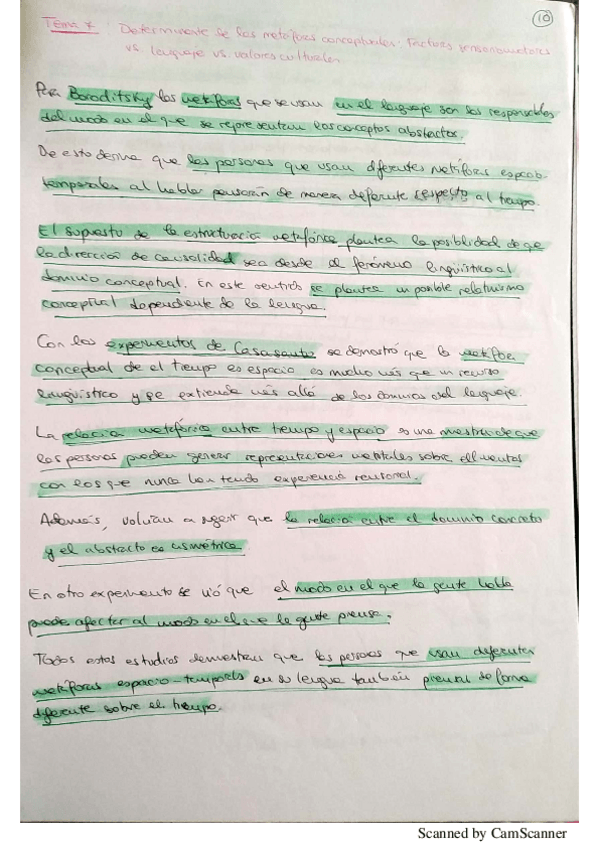 10
Tema 7: Determinante de las metáforas conceptuales: Factores sensoriomotores
vs. lenguaje vs. valores culturales.
Para Boroditsky las metáforas que se usan en el lenguaje son las responsables
del modo en el que se representan los conceptos abstractos.
De esto deriva que las personas que usan diferentes metáforas espacio-
temporales al hablar pensarán de manera diferente respecto al tiempo.
El supuesto de la estructuración metafórica plantea la posiblidad de que
la dirección de causalidad sea desde el fenómeno lingüístico al
dominio conceptual. En este sentido se plantea un posible relativismo
conceptual dependiente de la lengua.
Con los experimentos de Casasanto se demostró que la metáfora
conceptual de el tiempo es espacio es mucho más que un recurso
lingüístico y se extiende más allá de los dominios del lenguaje.
La relación metafórica entre tiempo y espacio es una muestra de que
las personas pueden generar representaciones mentales sobre elementos
con los que nunca han tenido experiencia sensorial.
Además, volvían a sugerir que la relación entre el dominio concreto
y el abstracto es asimétrica.
En otro experimento se vió que el modo en el que la gente habla
puede afectar al modo en el que la gente piensa.
Todos estos estudios demuestran que las personas que usan diferentes
metáforas espacio-temporales en su lengua también piensan de forma
diferente sobre el tiempo.
Scanned by CamScanner